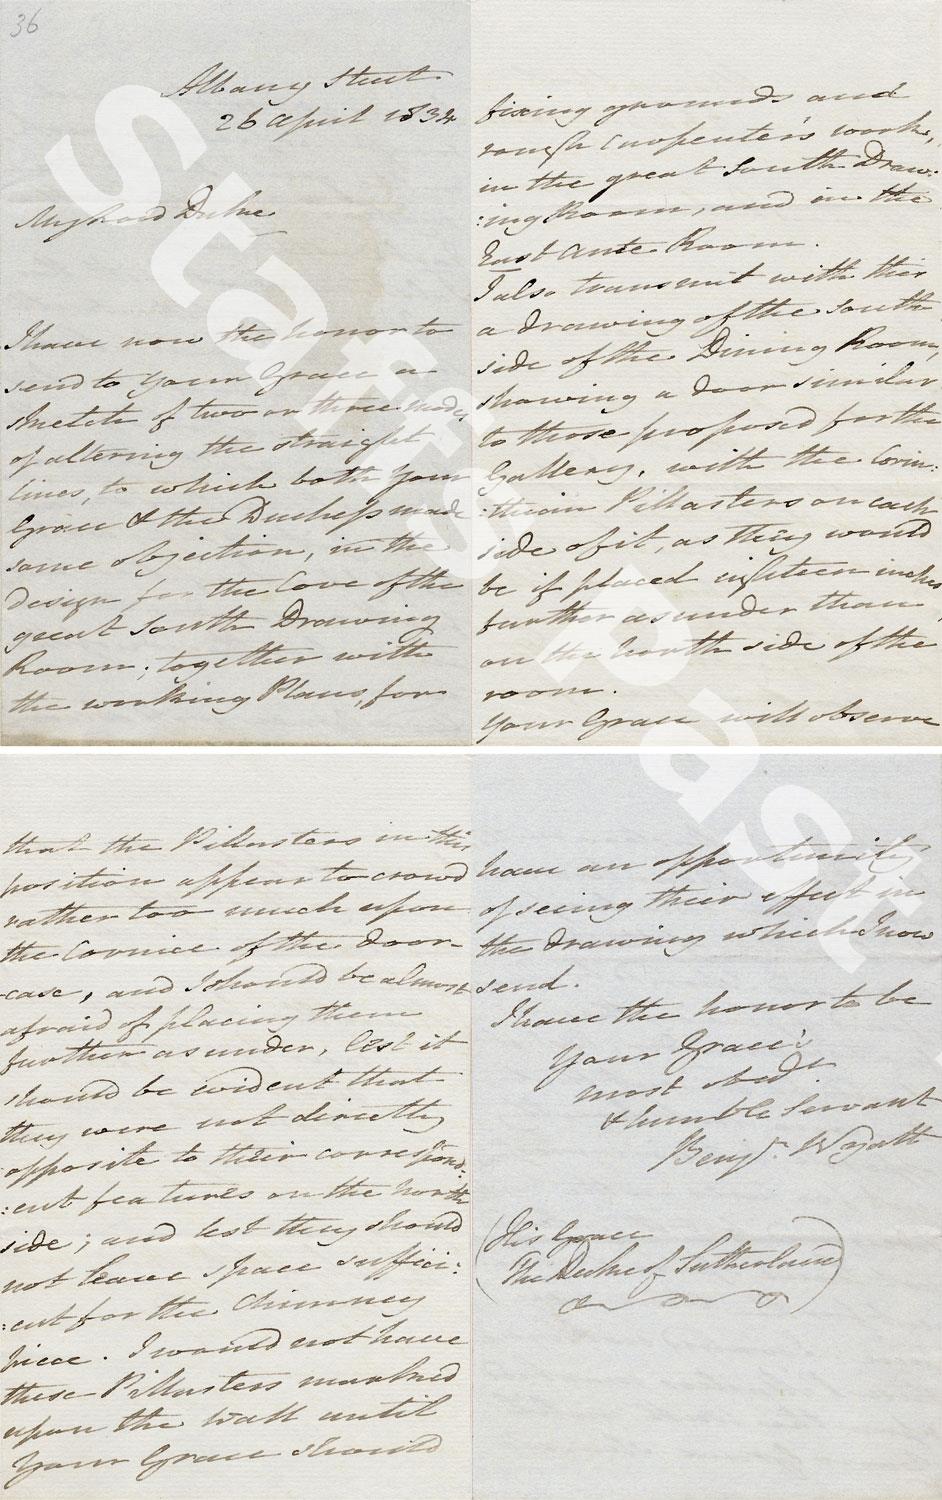 36
Albany Street
26 April 1834
My Lord Duke
I have now the honor to
send to your Grace a
sketch of two or three modes,
of altering the straight
lines, to which both your
Grace & the Duchess made
some objection, in the
design for the Cove of the
great South Drawing
Room; together with
the working Plans, for
fixing grounds and
rough Carpenter's work,
in the great South Draw:
:ing Room, and in the
East Ante Room.
I also transmit with this
a drawing of the South
side of the Dining Room,
shewing a door similar
to those proposed for the
Gallery, with the Corin:
:thian Pillasters on each
side of it, as they would
be if placed eighteen inches
further asunder than
on the North side of the
room.
Your Grace will observe
that the Pillasters in this
position appear to crowd
rather too much upon
the Cornice of the door-
-case, and I should be almost
afraid of placing them
further asunder, lest it
should be evident that
they were not directly
opposite to their correspond:
:ent features on the North
side; and lest they should
not leave space suffici:
:ent for the Chimney
piece. I would not have
these Pillasters marked
upon the wall until
Your Grace should
have an opportunity
of seeing their effect in
the drawing which I now
send.
I have the honor to be
Your Grace's
most obedt
& humble Servant
Benjn. Wyatt
(His Grace
The Duke of Sutherland)
Staffs Past